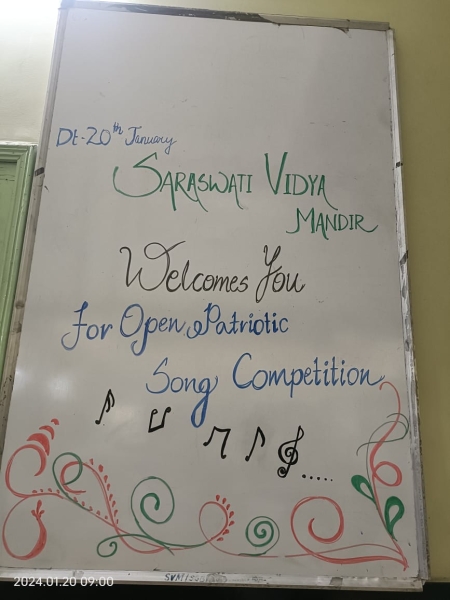 Dt-20th January
SARASWATI VIDYA
MANDIR
Welcomes You
for Open Patriotic
Song Competition
2024.01.20 09:00